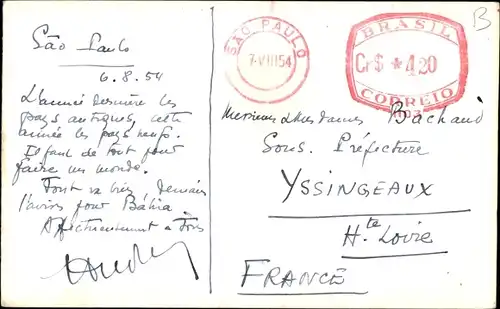 São Paulo
6.8.54
L'année dernière les
pays antiques, cette
année les pays neufs.
Il faut de tout pour
faire un monde.
Tout va bien Demain
l'avion pour Bahia
Affectueusement à tous
SÃO PAULO
7-VIII 54
BRASIL
Cr$ * 4,20
CORREIO
Messieurs & Mesdames Bachaud
Sous. Préfecture
YSSINGEAUX
Hte Loire
FRANCE
B